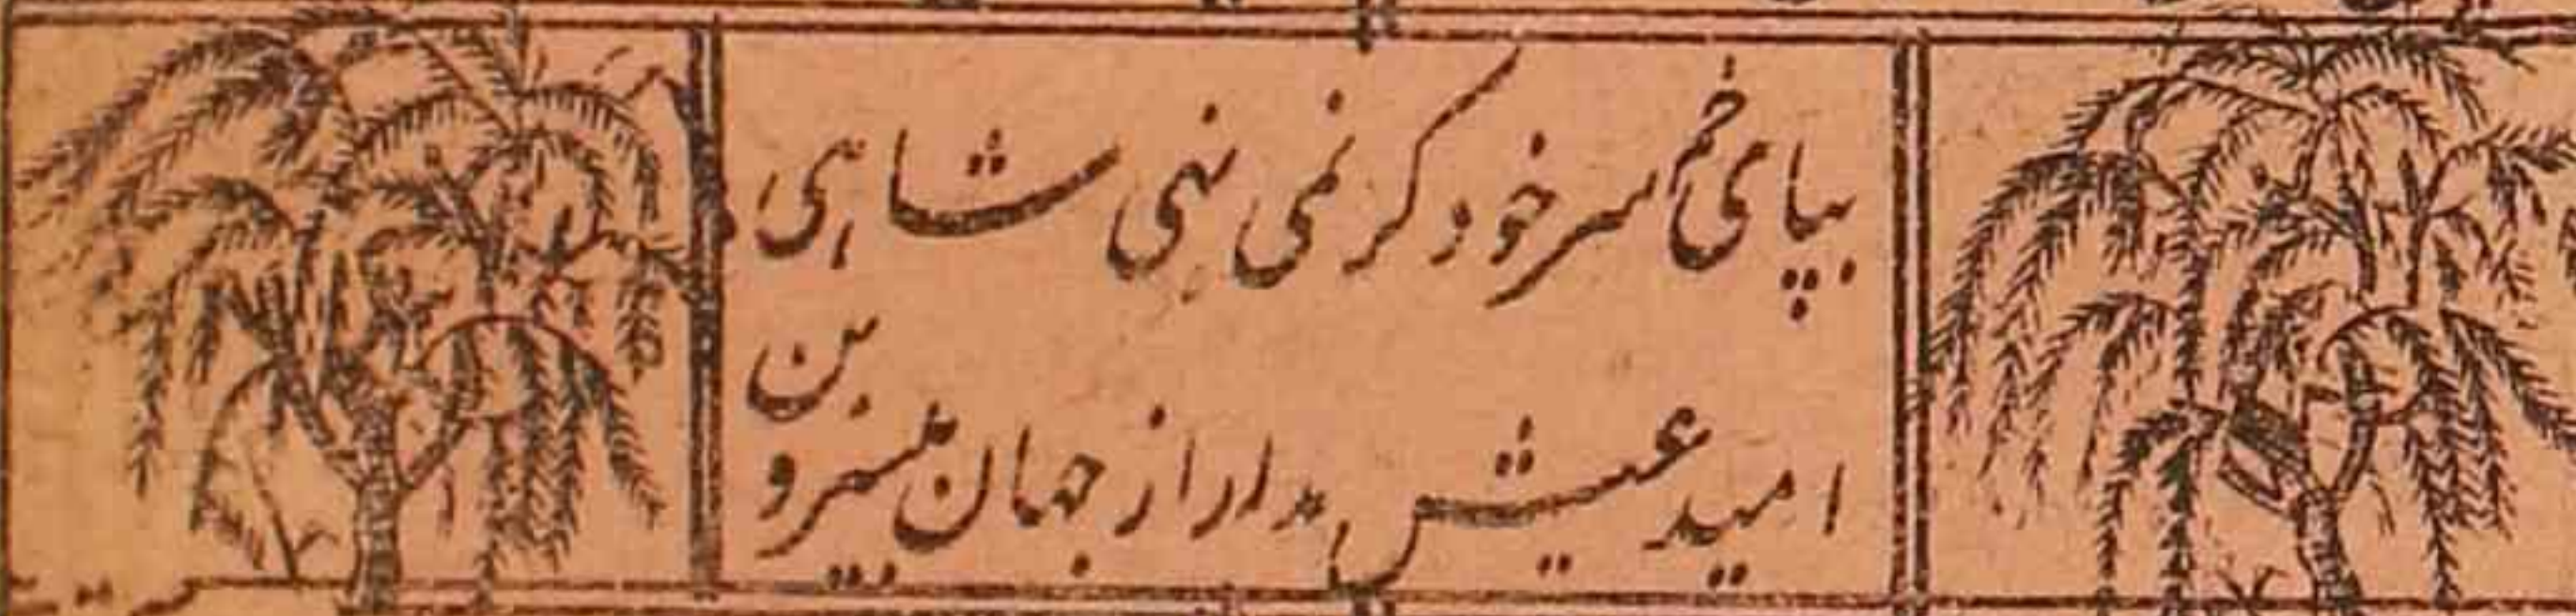 بپای خم سر خود کر نمی نهی شاهی
امید عیش مدار از جهان بیسر و بن